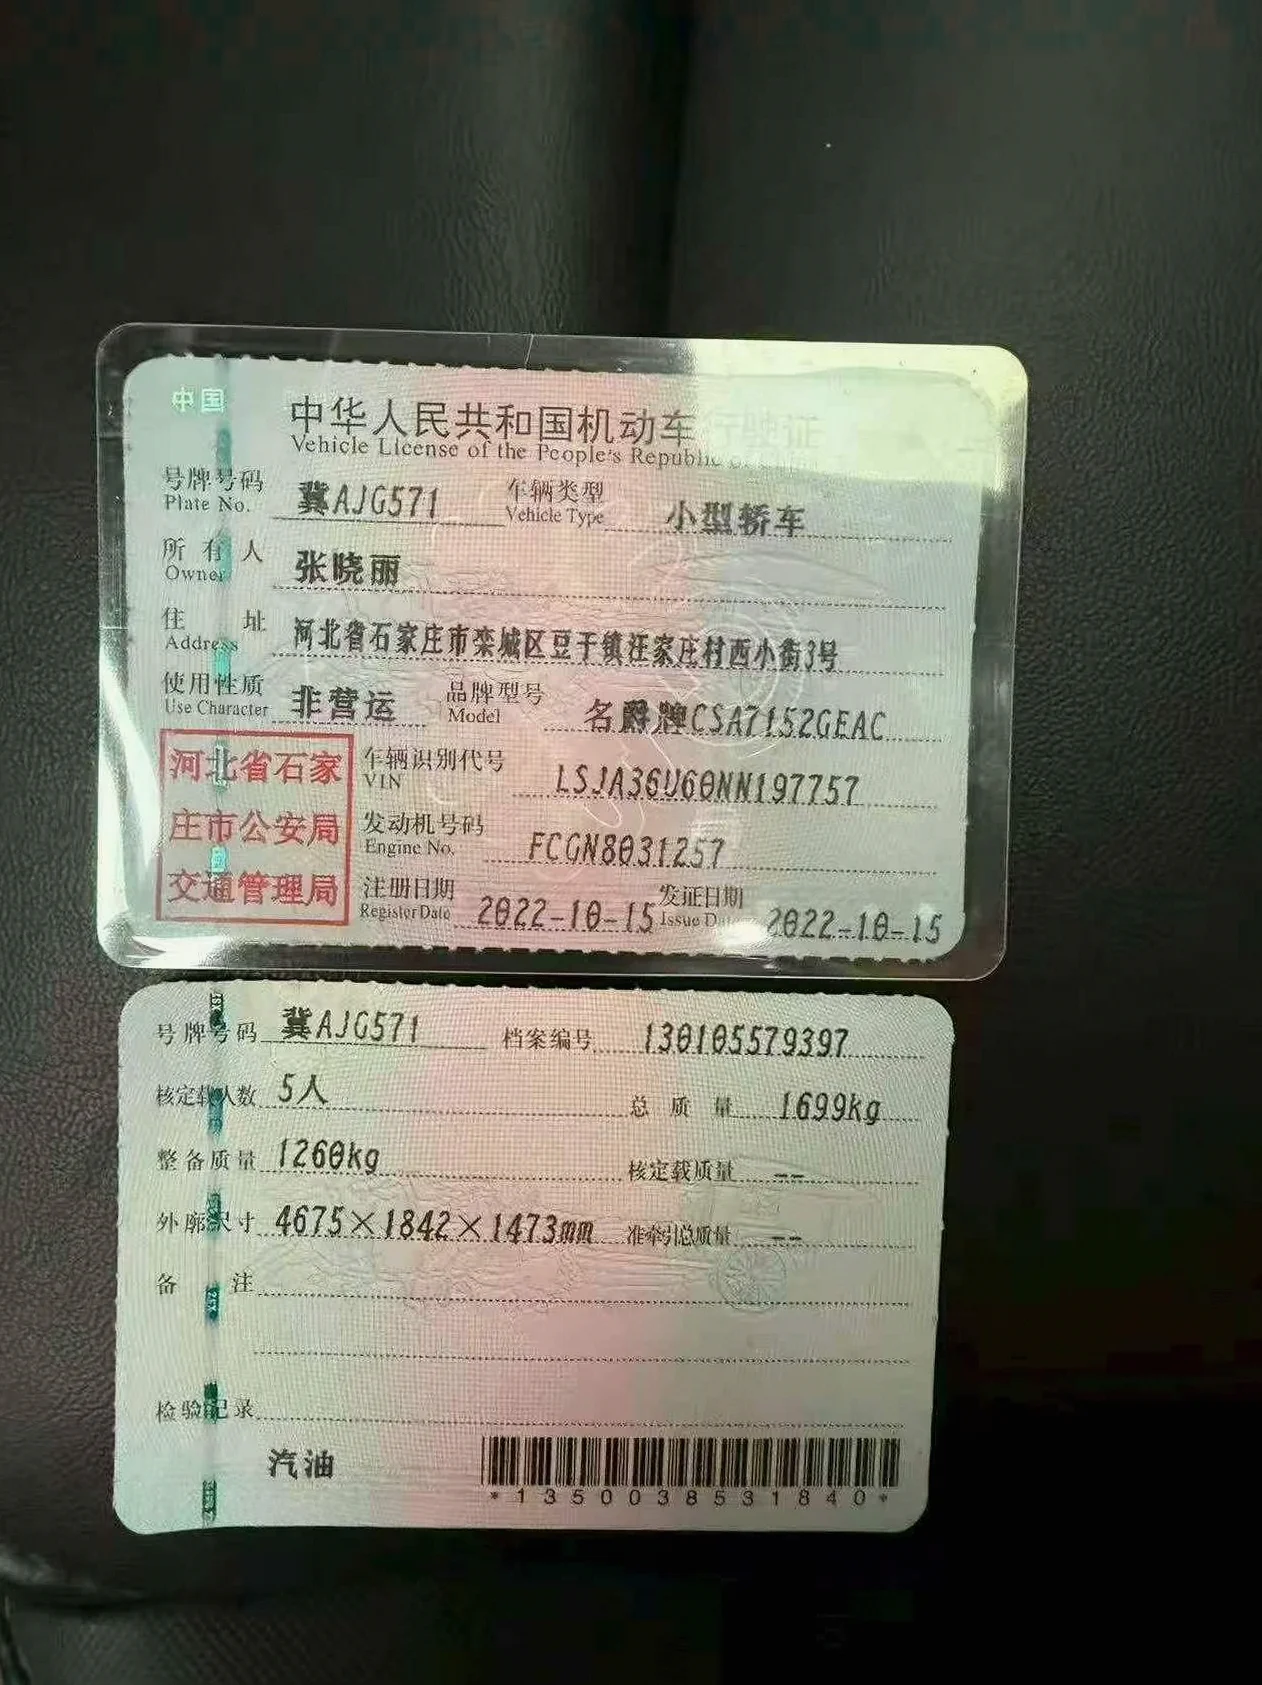 中国
中华人民共和国机动车行驶证
Vehicle License of the People's Republic of China
号牌号码 冀AJG571 车辆类型 小型轿车
Plate No. Vehicle Type
所有人 张晓丽
Owner
住址 河北省石家庄市栾城区豆于镇汪家庄村西小街3号
Address
使用性质 非营运 品牌型号 名爵牌CSA7152GEAC
Use Character Model
河北省石家
庄市公安局
交通管理局
车辆识别代号 LSJA36U60NN197757
VIN
发动机号码 FCGN8031257
Engine No.
注册日期 2022-10-15 发证日期 2022-10-15
Register Date Issue Date
号牌号码 冀AJG571 档案编号 130105579397
核定载人数 5人 总质量 1699kg
整备质量 1260kg 核定载质量 --
外廓尺寸 4675×1842×1473mm 准牵引总质量 --
备注
检验记录
汽油
*1350038531840*